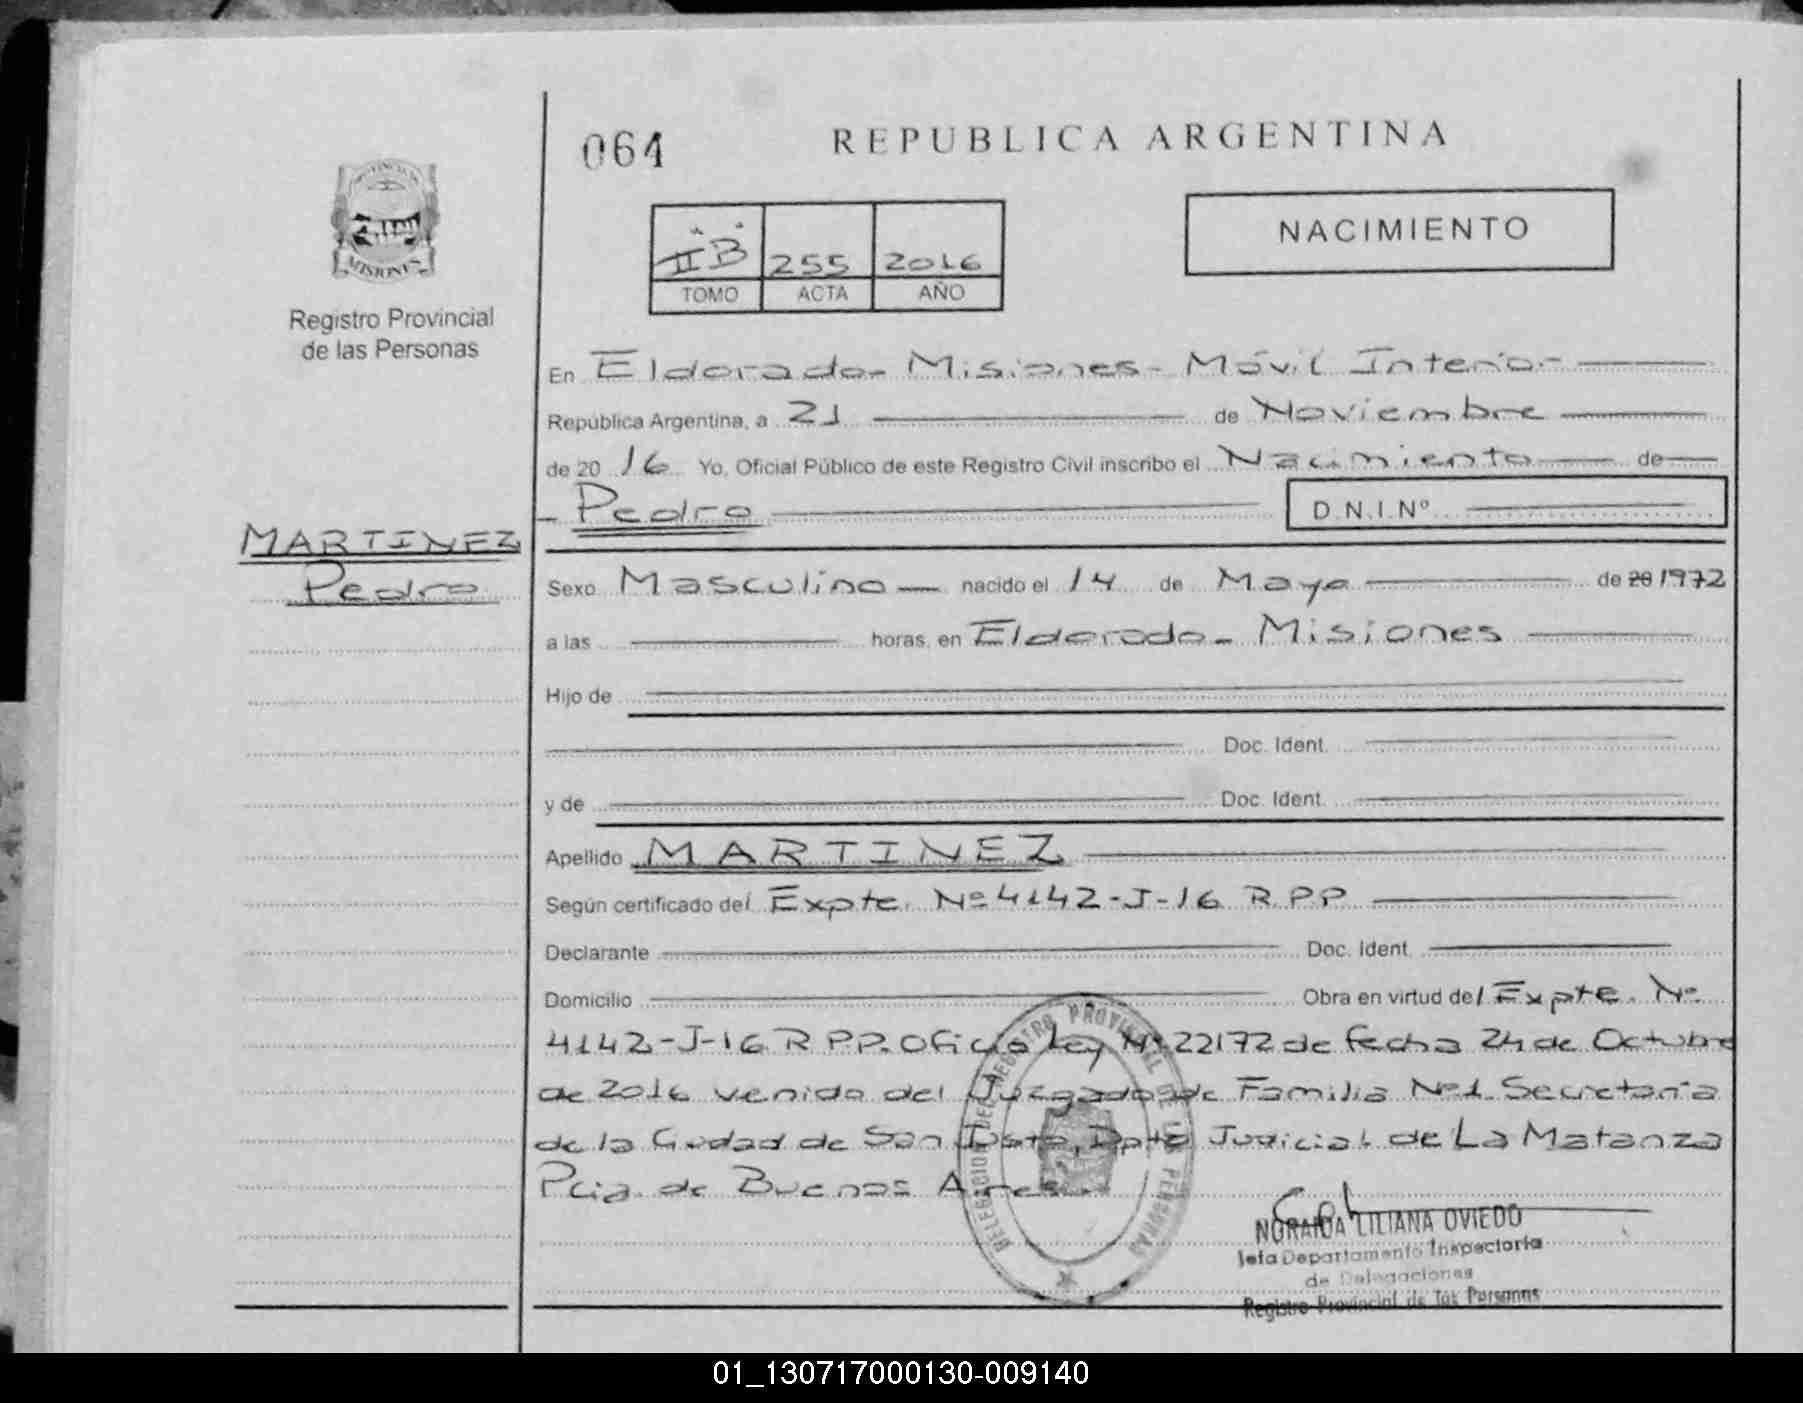 064
REPUBLICA ARGENTINA
MISIONES
Registro Provincial
de las Personas
NACIMIENTO
II B 255 2016
TOMO ACTA AÑO
En Eldorado- Misiones- Móvil Interior-
República Argentina, a 21 de Noviembre
de 20 16 Yo, Oficial Público de este Registro Civil inscribo el Nacimiento de
Pedro D.N.I.Nº
MARTINEZ
Pedro
Sexo Masculino nacido el 14 de Mayo de 20 1972
a las horas, en Eldorado- Misiones
Hijo de
Doc. Ident.
y de Doc. Ident.
Apellido MARTINEZ
Según certificado del Expte. Nº 4142-J-16 R.P.P
Declarante Doc. Ident.
Domicilio Obra en virtud del Expte. Nº
4142-J-16 R.P.P. Oficio Ley Nº 22172 de fecha 24 de Octubre
de 2016 venido del Juzgado de Familia Nº1. Secretaría
de la Ciudad de San Justo, Dpto Judicial de La Matanza
Pcia. de Buenos Aires.
DELEGACION DEL REGISTRO PROVINCIAL DE LAS PERSONAS
NORAIDA LILIANA OVIEDO
Jefa Departamento Inspectoria
de Delegaciones
Registro Provincial de las Personas
01_130717000130-009140